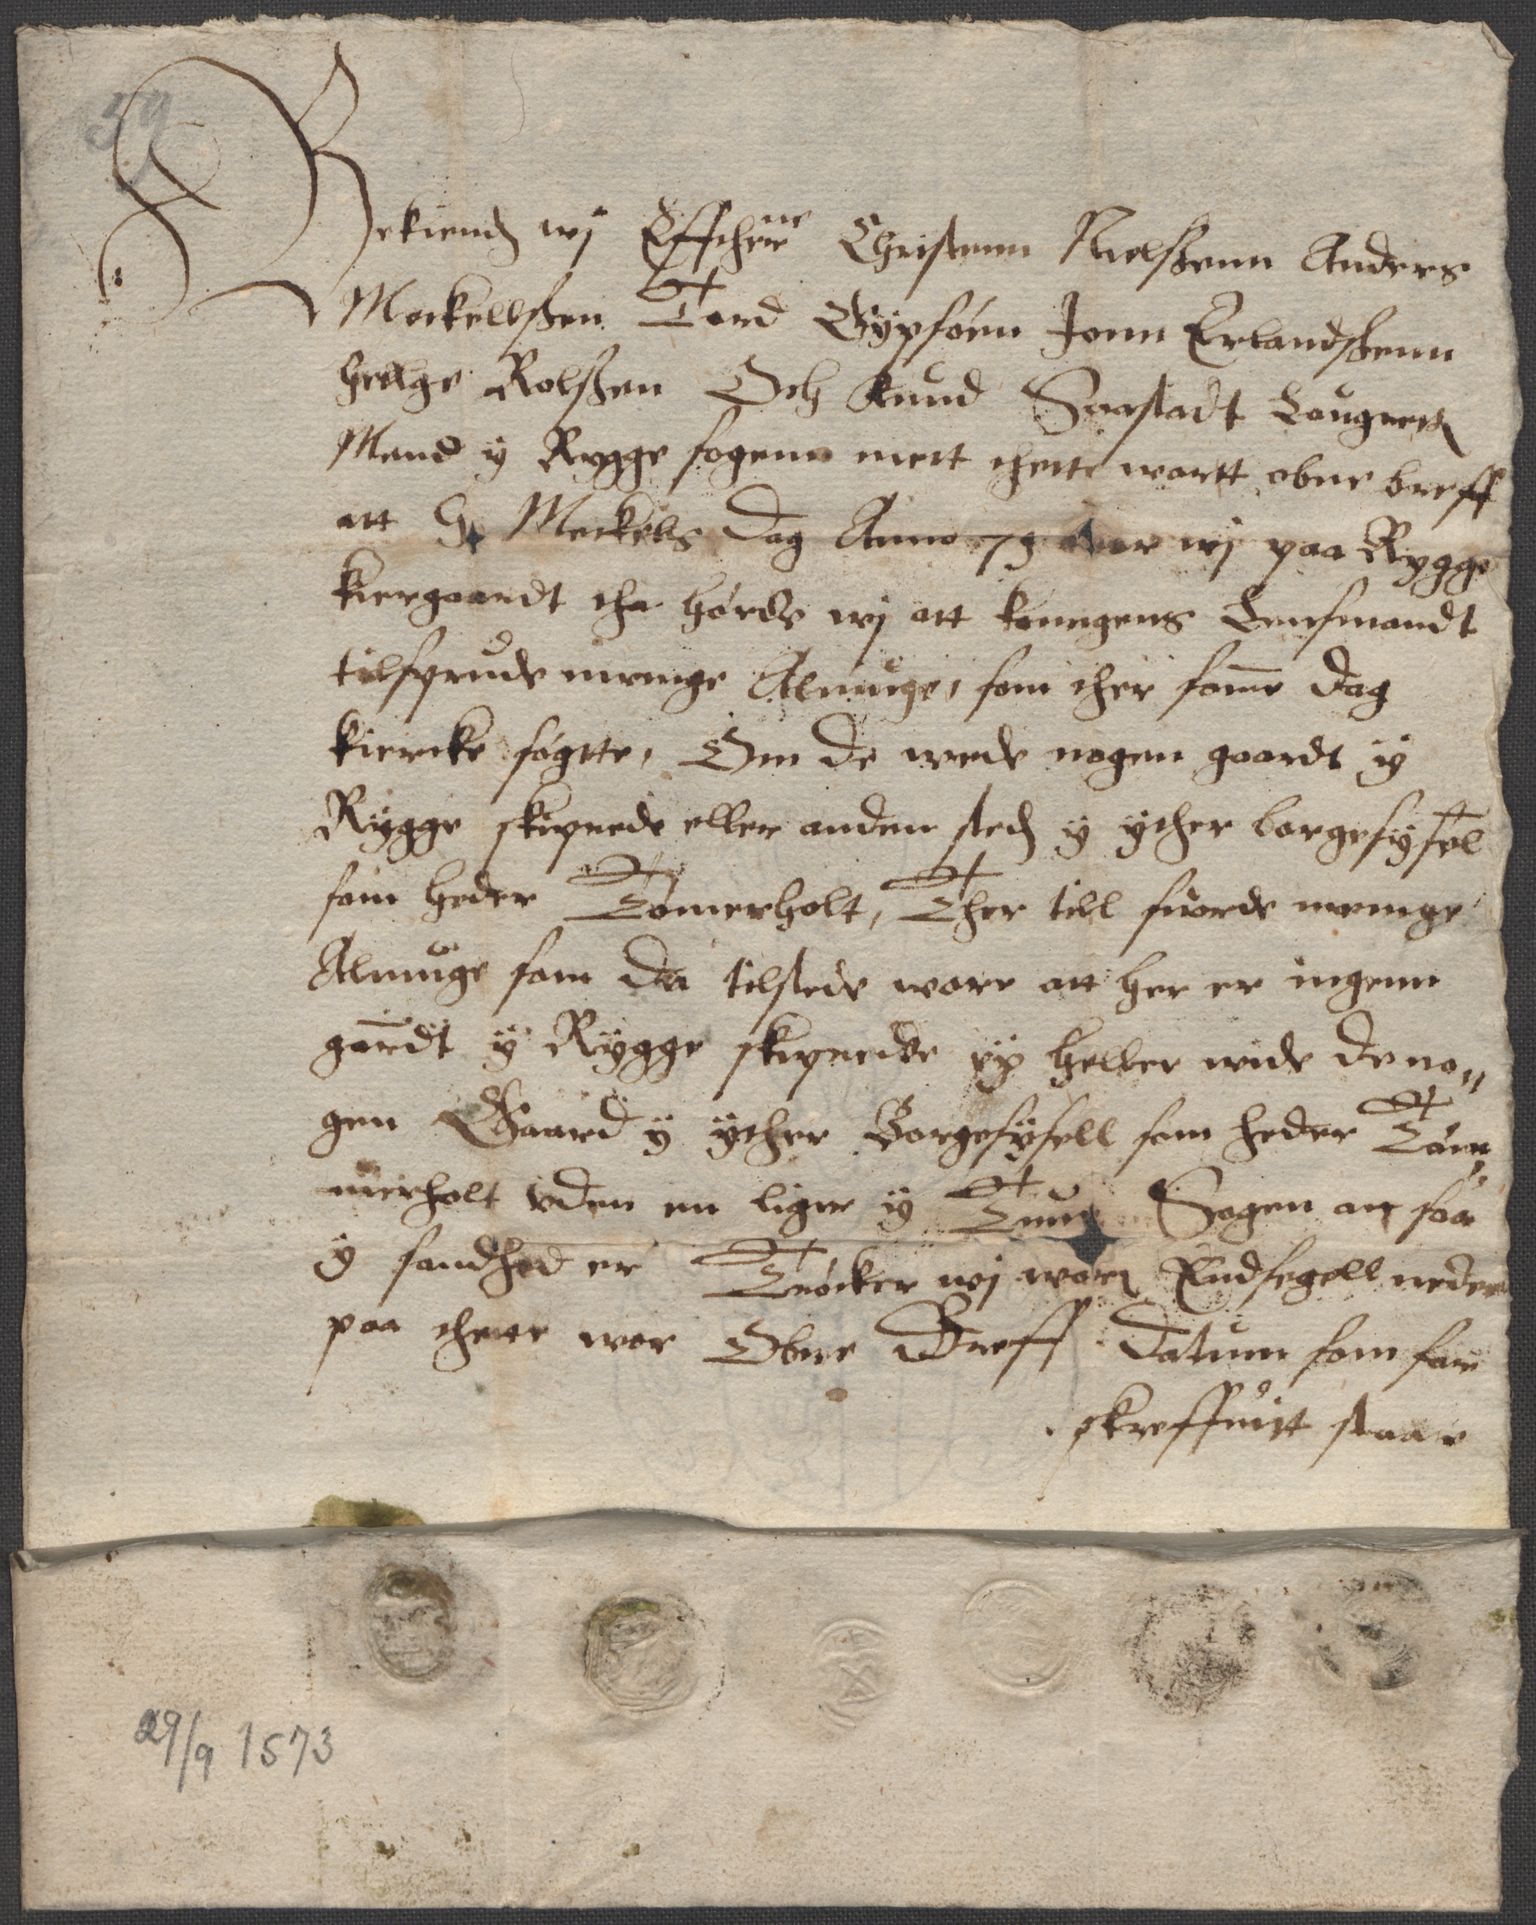 59
Bekiendis wj Effthr: Christenn Nielßenn Anders
Mickellßen Tord Gypsøen Jonn Erlandßenn
Hellge Rolßen Och Knud Saastadt Laugrett
Mend y Rygge sogenn mett thette wortt obne breff
att S. Mickels dag Anno 73 war wj paa Rygge
kiergaardt tha hørde wj att konngens Lensmandt
tilspurde menige Almuge, som ther samme dag
kiercke søgtte, Om de wede nogen gaardt y
Rygge skipnede eller anden sted y yther borgesysel
som heder Tømerholt, Ther till suorde menige
Almuge som da tilstede wore att her er ingenn
gaardt y Rygge skipnede ey heller wide de no„
gen Gaard y yther Borgesysell som heder Tøm„
merholt vden en liger y Tune Sogen att saa
y sandhed er Trøcker wj wore Endsegell neden
paa thette wor Obne Breff Datum som for
skreffuitt staar
29/9 1573